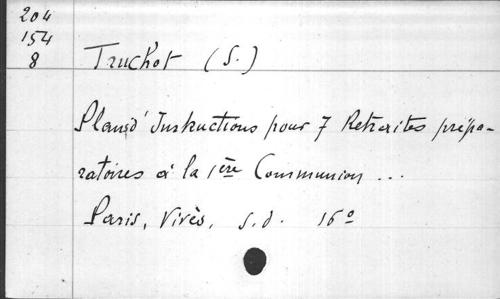 204
154
8
Truchot (S.)
Plans d' Instructions pour 7 Retraites prépa-
ratoires à la 1ère Communion ...
Paris, Vivès, s.d. 16º